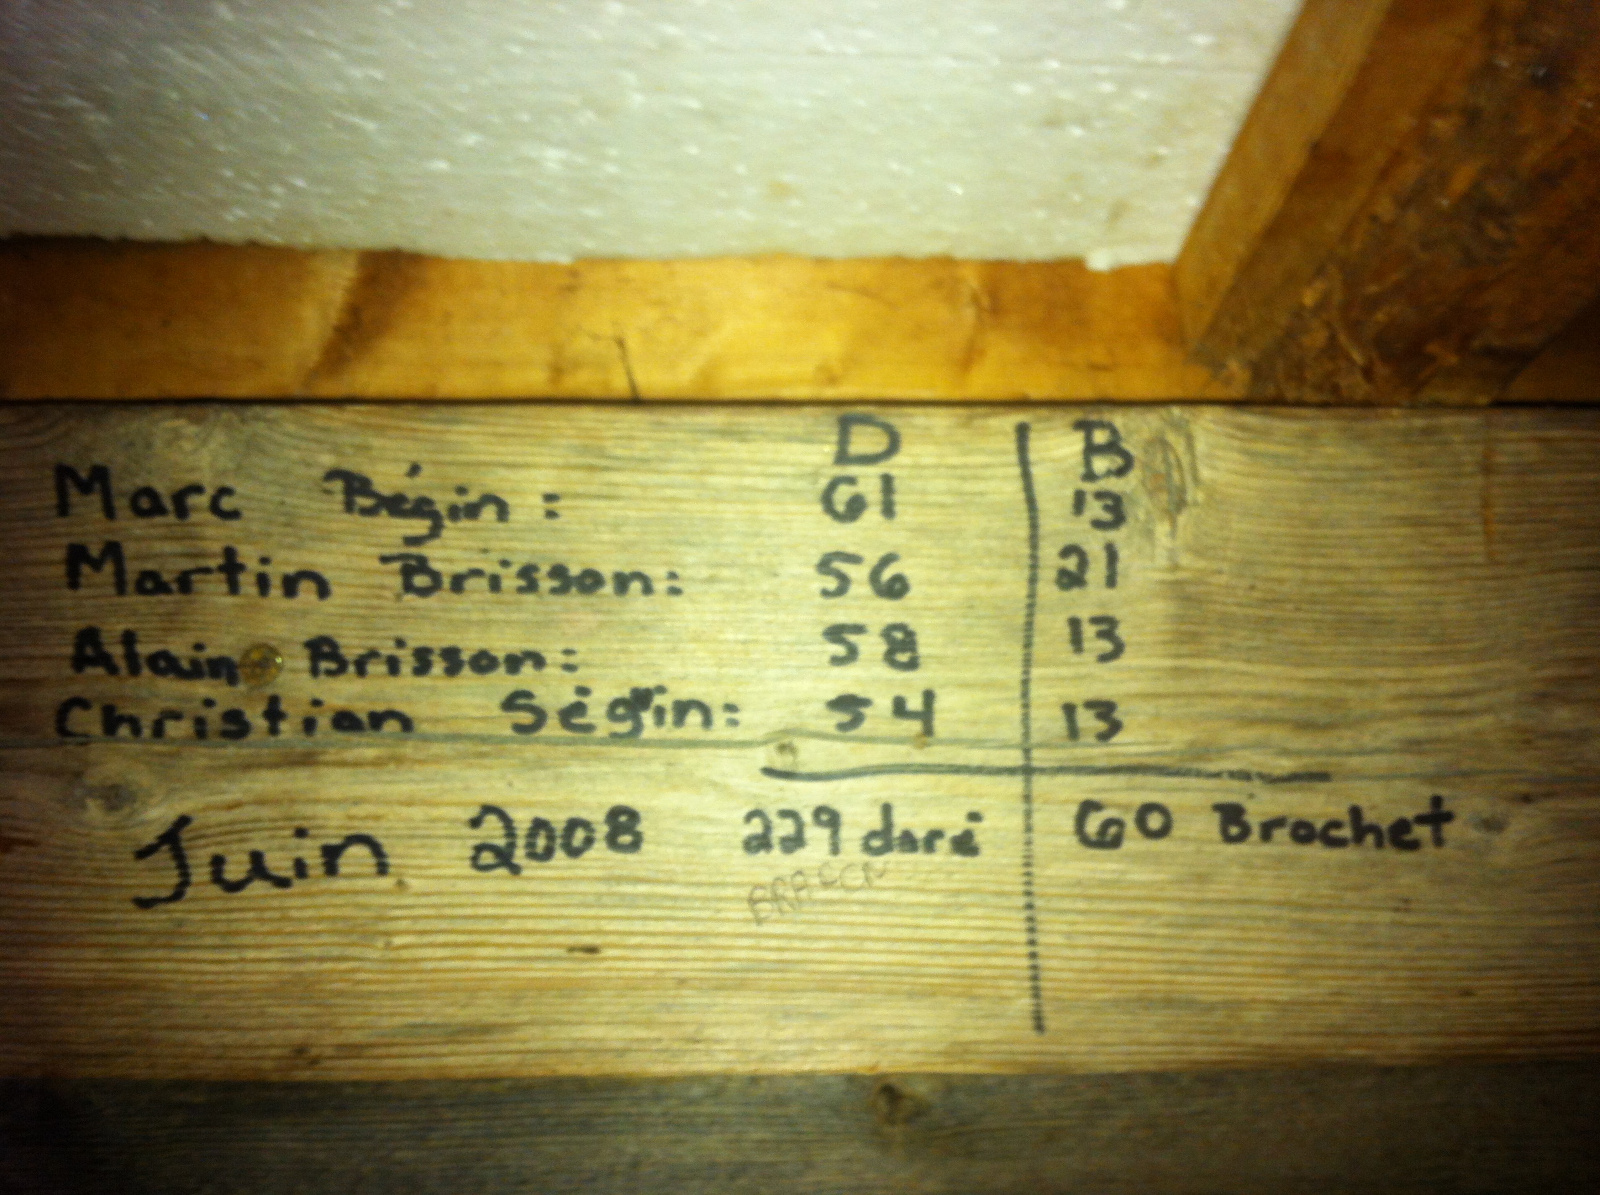 D B
Marc Bégin : 61 13
Martin Brisson: 56 21
Alain Brisson: 58 13
Christian Ségin: 54 13
Juin 2008 229 doré 60 Brochet